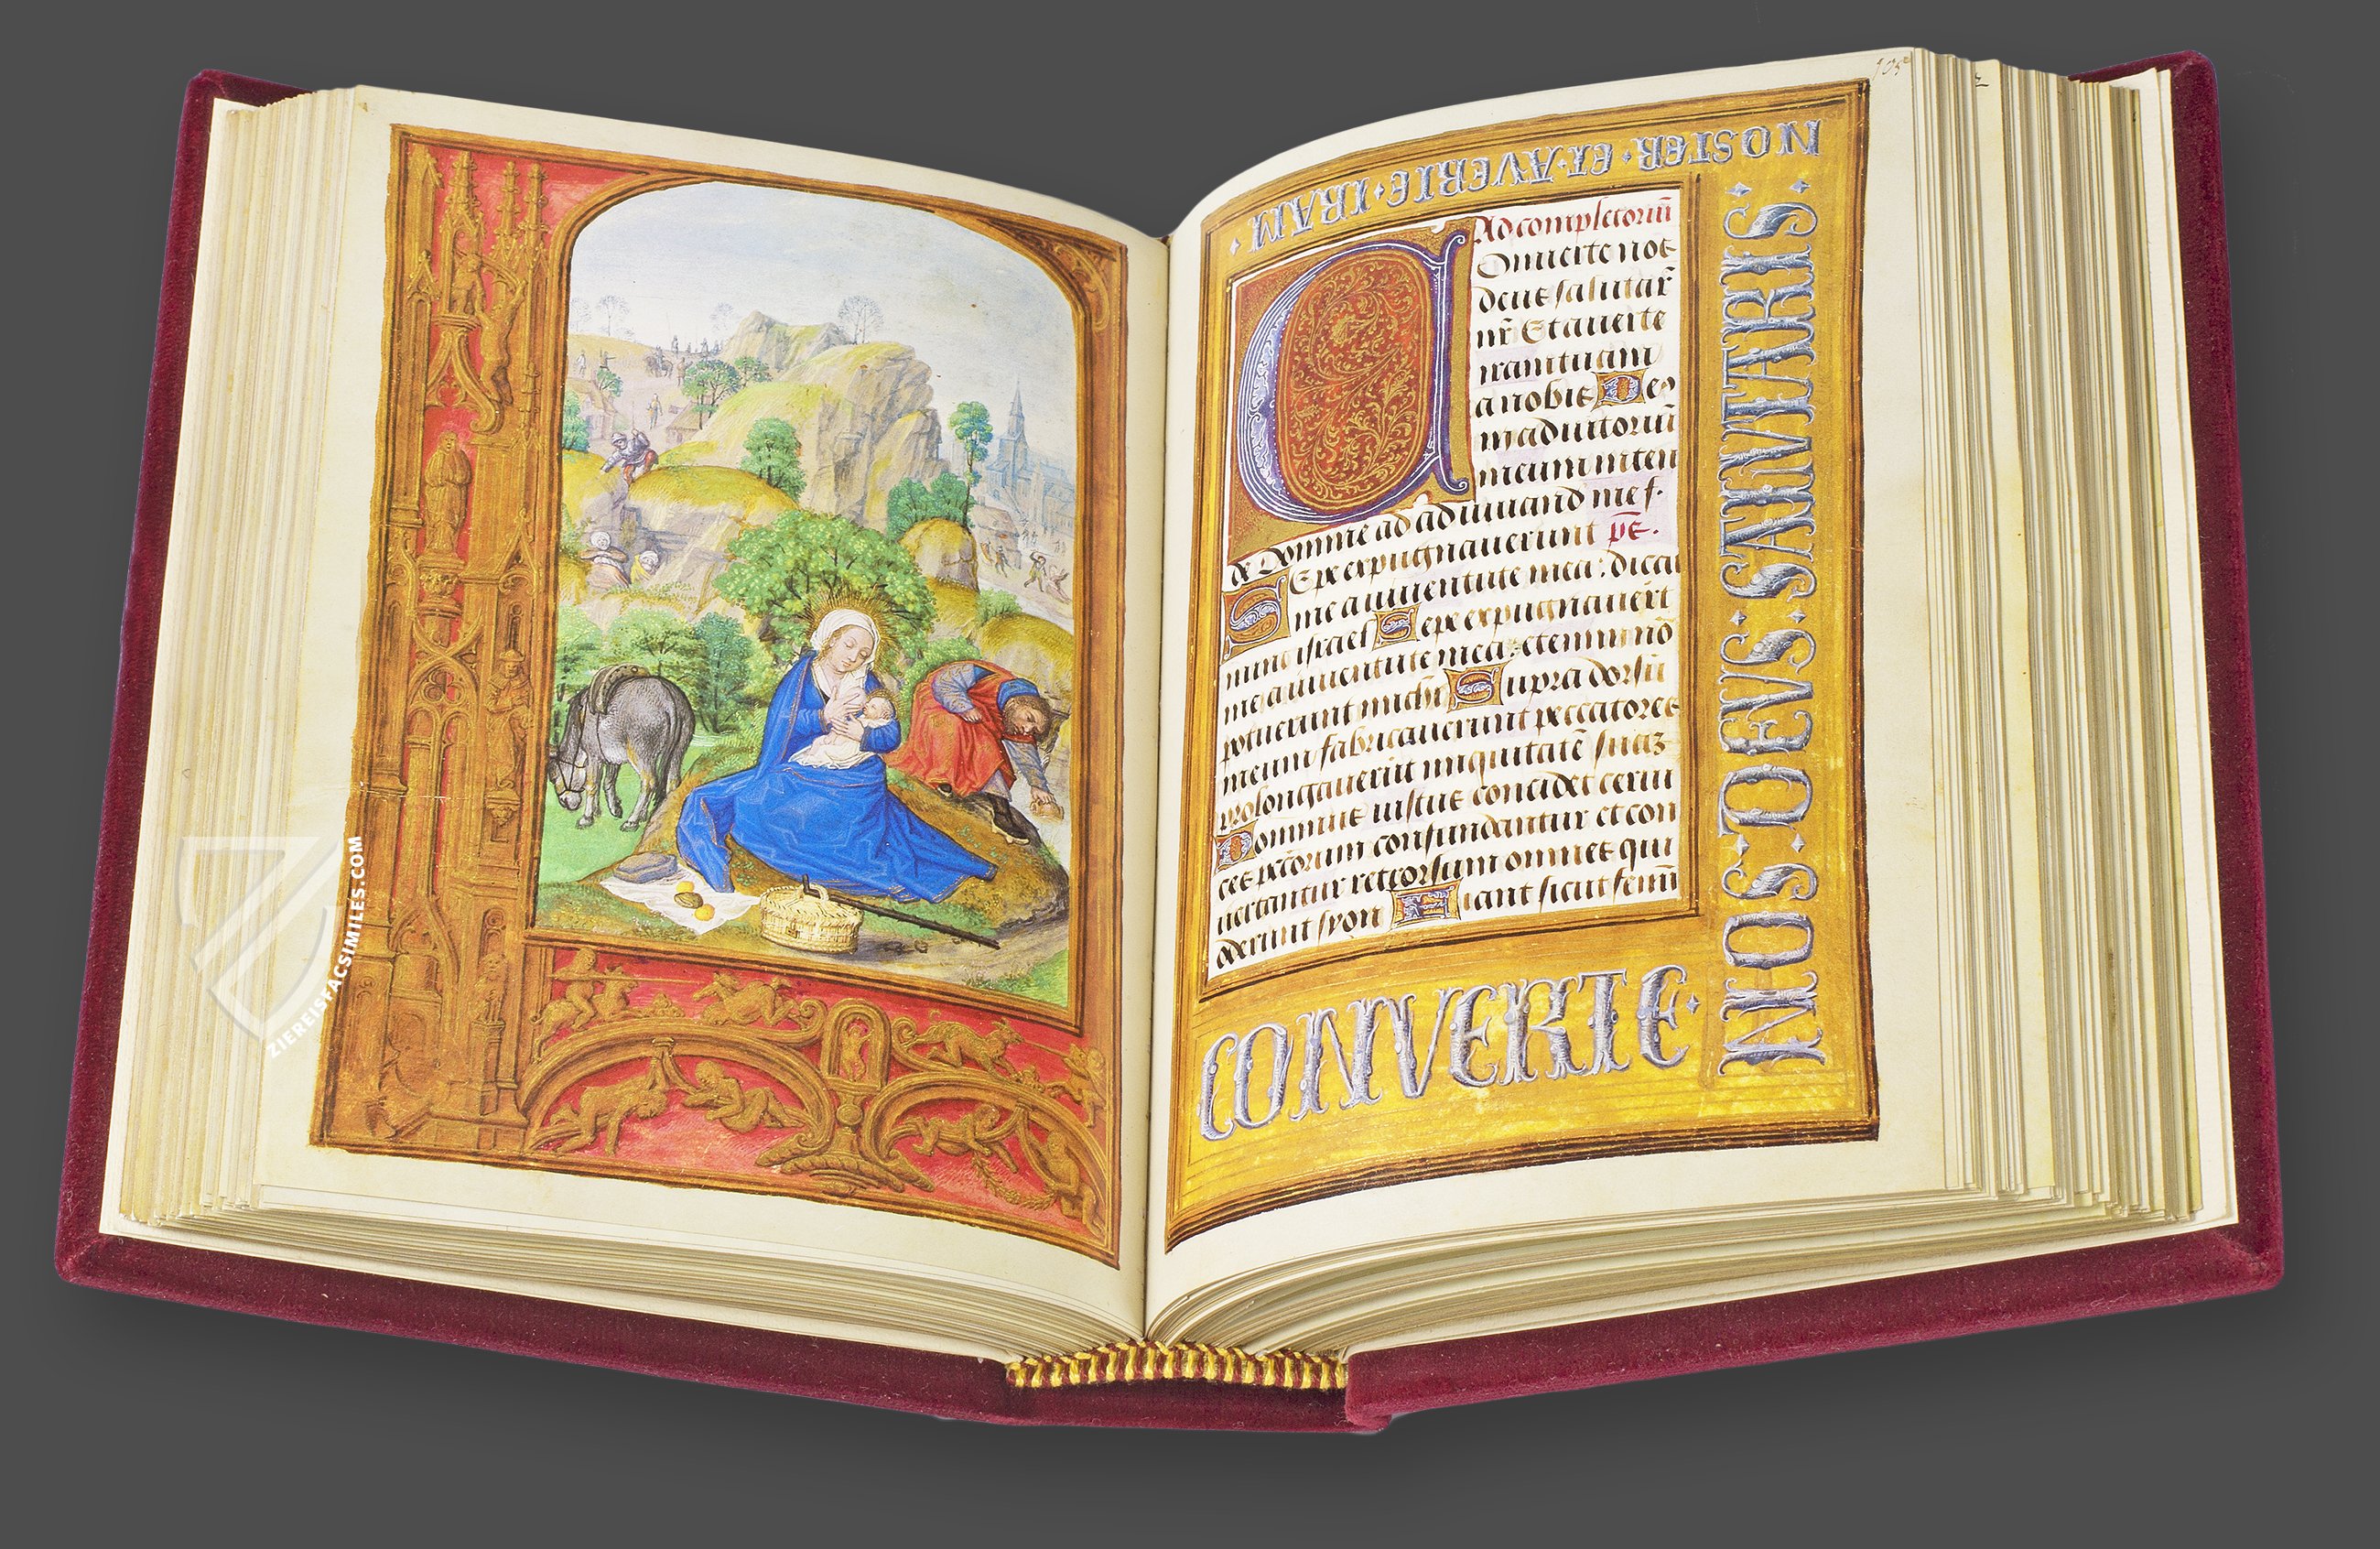 105
Ad completoriū
Conuerte nos
deus salutar̄
nr̄ Et auerte
iram tuam
a nobis De
us in adiutoriū
meum inten
de Domine ad adiuuand me f.
Sepe expugnauerunt ps.
me a iuuentute mea: dicat
nunc israel Sepe expugnauert̄
me a iuuentute mea: etenim nō
potuerunt michi Supra dorsū
meum fabricauerunt peccatores
prolongauerūt iniquitatē suaꝫ
Dominus iustus concidet cerui
ces pctōrum confundantur et con
uertantur retrorsum omnes qui
oderunt syon Fiant sicut fenū
CONVERTE·
NOS·DEVS:SALVTARIS:
NOSTER·ET·AVERTE·IRAM·
ZIEREISFACSIMILES.COM